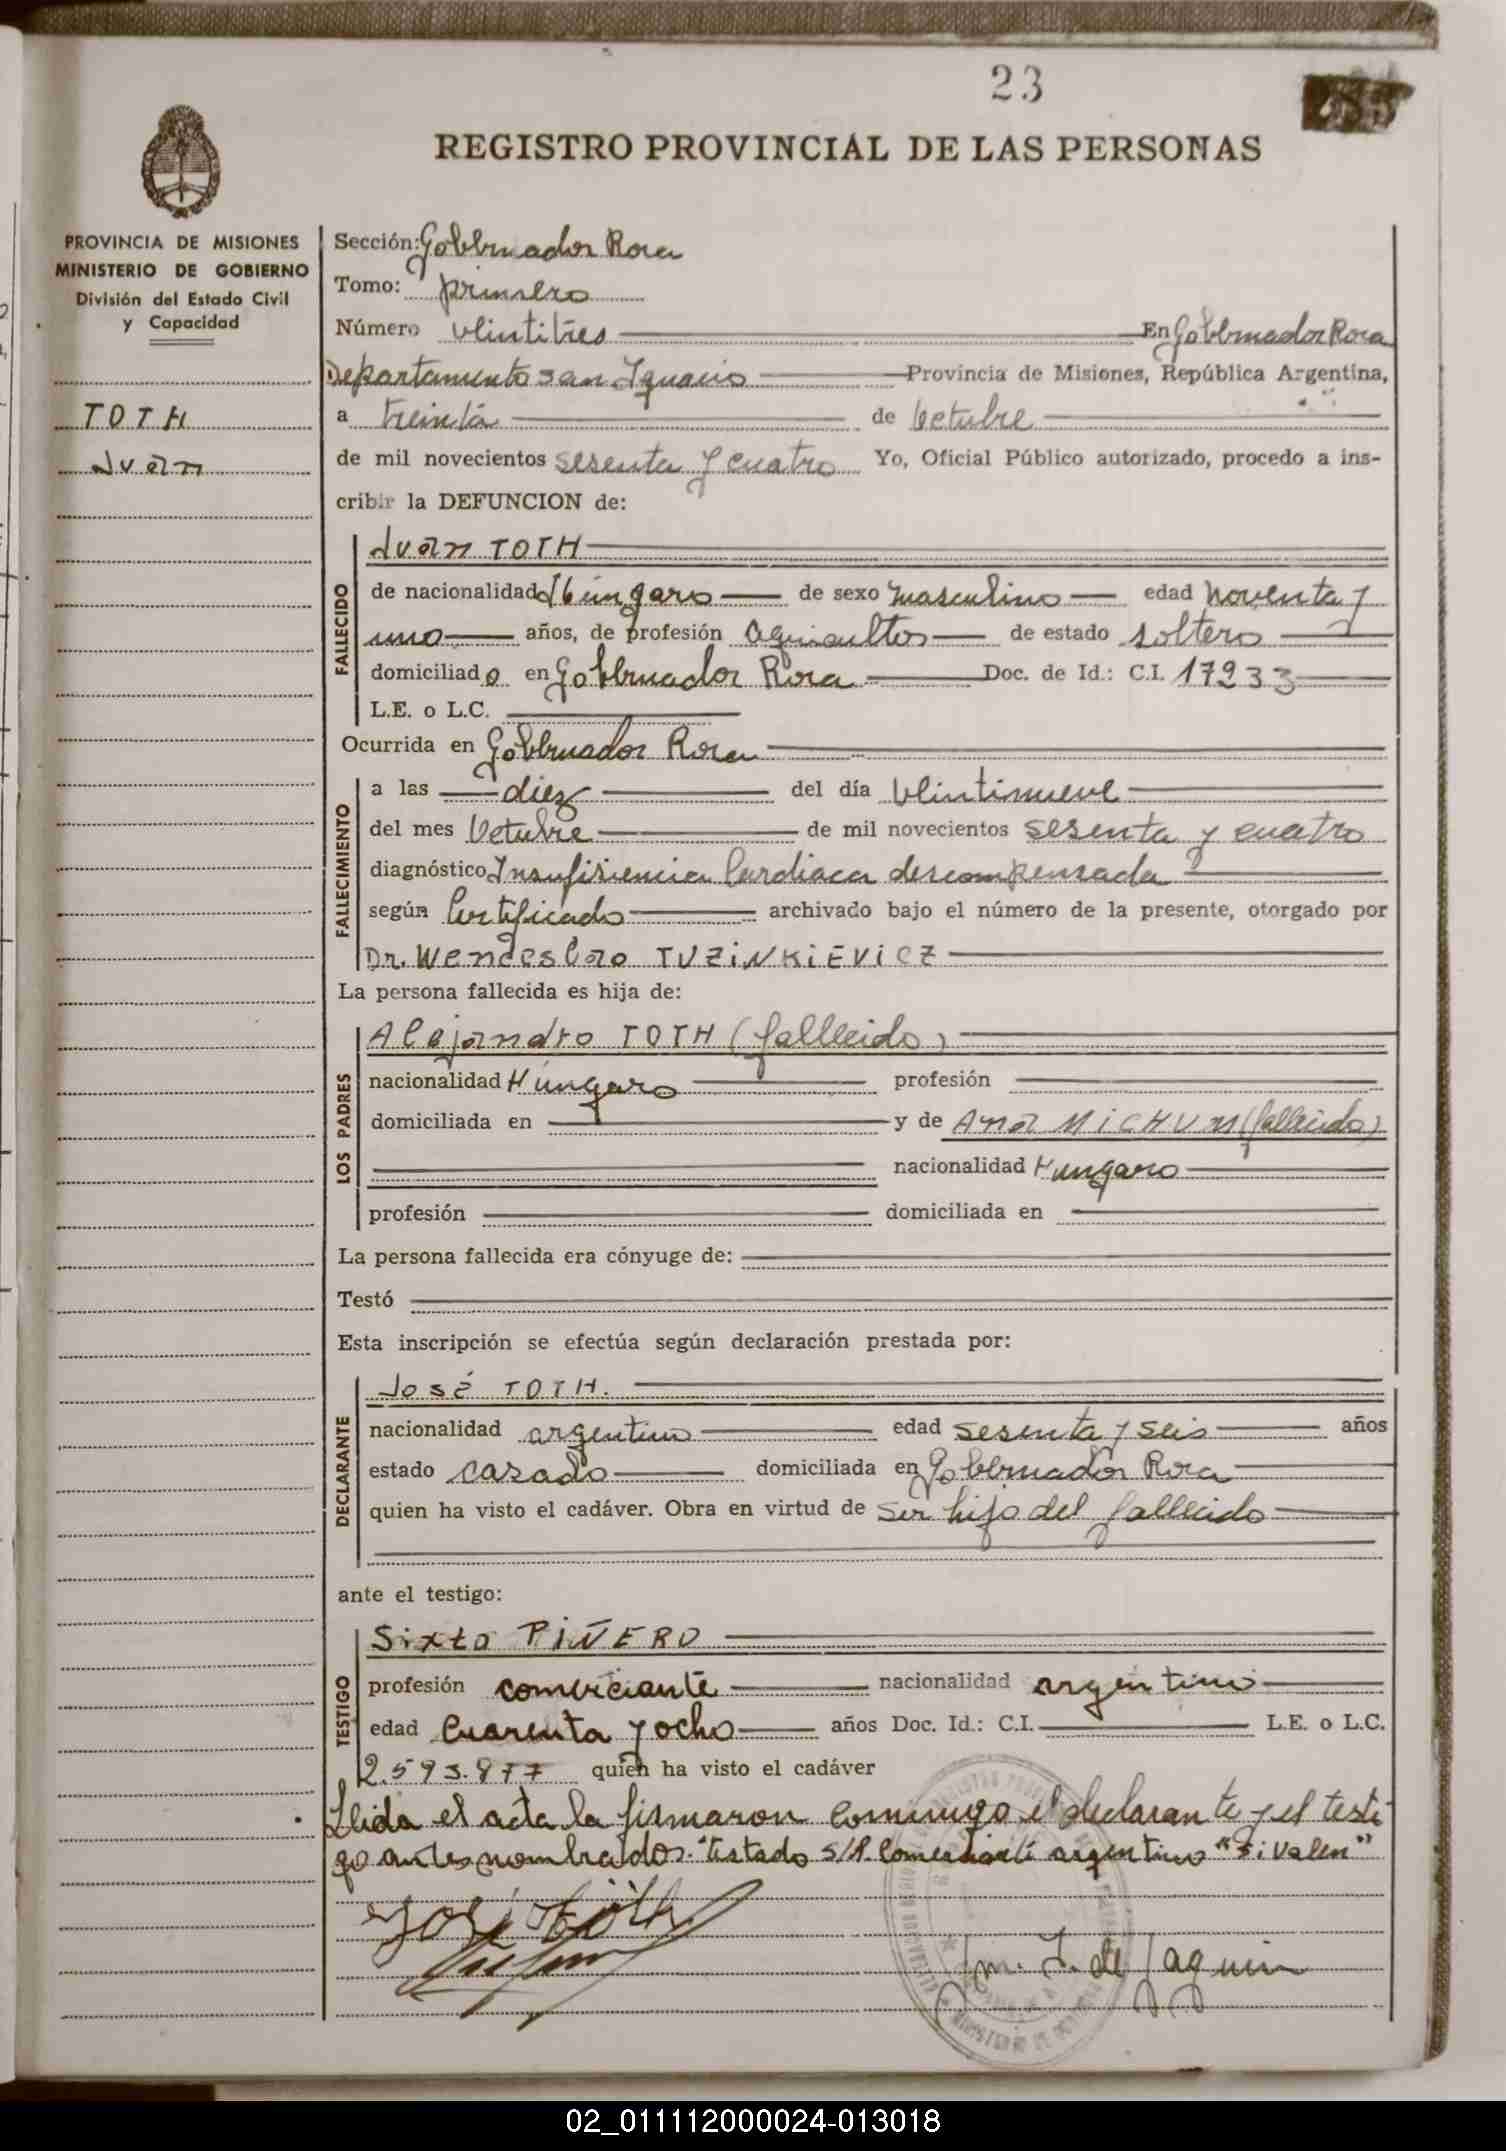 23
REGISTRO PROVINCIAL DE LAS PERSONAS
PROVINCIA DE MISIONES
MINISTERIO DE GOBIERNO
División del Estado Civil
y Capacidad
TOTH
Juan
Sección: Gobernador Roca
Tomo: primero
Número veintitres En Gobernador Roca
Departamento San Ignacio Provincia de Misiones, República Argentina,
a treinta de Octubre
de mil novecientos sesenta y cuatro Yo, Oficial Público autorizado, procedo a ins-
cribir la DEFUNCION de:
FALLECIDO
Juan TOTH
de nacionalidad Húngaro de sexo masculino edad noventa y
uno años, de profesión agricultor de estado soltero
domiciliado en Gobernador Roca Doc. de Id.: C.I. 17233
L.E. o L.C.
Ocurrida en Gobernador Roca
FALLECIMIENTO
a las diez del día veintinueve
del mes Octubre de mil novecientos sesenta y cuatro
diagnóstico Insuficiencia Cardiaca descompensada
según Certificado archivado bajo el número de la presente, otorgado por
Dr. Wendeslao TUZiNKiEViCZ
La persona fallecida es hija de:
LOS PADRES
Alejandro TOTH (fallecido)
nacionalidad Húngaro profesión
domiciliada en y de Ana MiCHUM (fallecida)
nacionalidad Hungaro
profesión domiciliada en
La persona fallecida era cónyuge de:
Testó
Esta inscripción se efectúa según declaración prestada por:
DECLARANTE
José TOTH.
nacionalidad argentino edad sesenta y seis años
estado casado domiciliada en Gobernador Roca
quien ha visto el cadáver. Obra en virtud de ser hijo del fallecido
ante el testigo:
TESTIGO
Sixto PiÑERO
profesión comerciante nacionalidad argentino
edad cuarenta y ocho años Doc. Id.: C.I. L.E. o L.C.
2.593.877 quien ha visto el cadáver
Leida el acta la firmaron conmigo el declarante y el testi-
go antes nombrados. Testado S/R. Comerciante argentino "Si Valen"
José Tóth